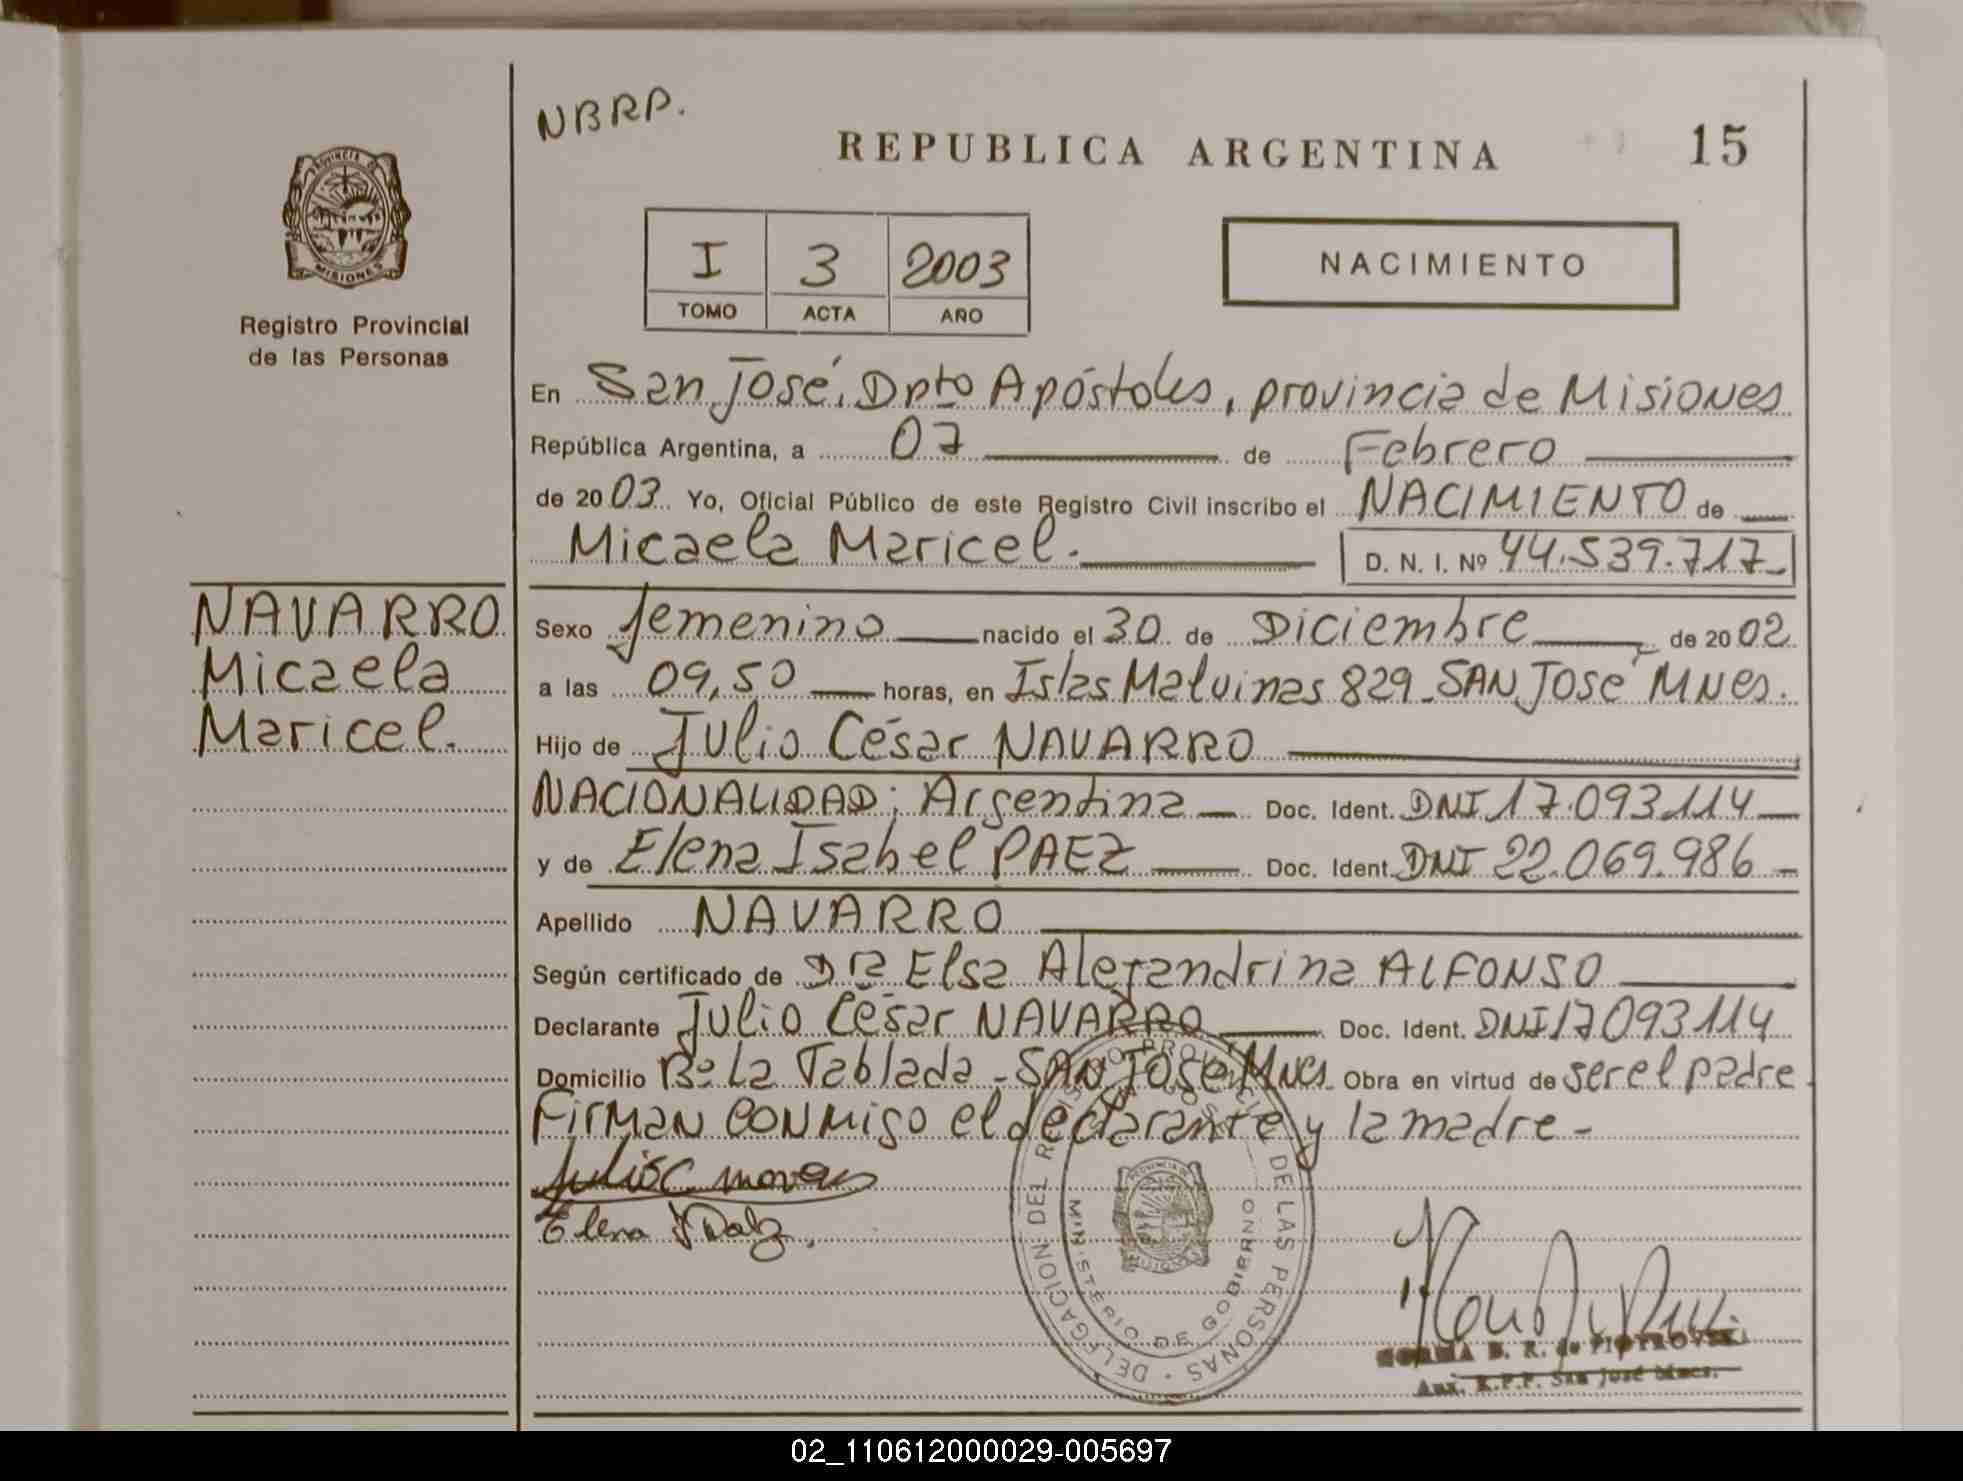 NBRP.
REPUBLICA ARGENTINA 15
PROVINCIA DE
MISIONES
Registro Provincial
de las Personas
I 3 2003
TOMO ACTA AÑO
NACIMIENTO
En San José, Dpto Apóstoles, provincia de Misiones
República Argentina, a 07 de Febrero
de 2003 Yo, Oficial Público de este Registro Civil inscribo el NACIMIENTO de
Micaela Maricel. D. N. I. Nº 44.539.717
NAVARRO
Micaela
Maricel.
Sexo femenino nacido el 30 de Diciembre de 2002
a las 09,50 horas, en Islas Malvinas 829 - SAN JOSÉ Mnes.
Hijo de Julio César NAVARRO
NACIONALIDAD: Argentina Doc. Ident. DNI 17.093114
y de Elena Isabel PAEZ Doc. Ident. DNI 22.069.986
Apellido NAVARRO
Según certificado de Dra Elsa Alejandrina ALFONSO
Declarante Julio César NAVARRO Doc. Ident. DNI 17093114
Domicilio Bº La Tablada - SAN JOSÉ Mnes Obra en virtud de ser el padre
Firman conmigo el declarante y la madre -
Julio C
Elena I Paez.
DELEGACION DEL REGISTRO PROVINCIAL DE LAS PERSONAS
MINISTERIO DE GOBIERNO
NORMA B. R. de PIOTROVSKI
Aux. R.P.P. San José Mnes.
02_110612000029-005697